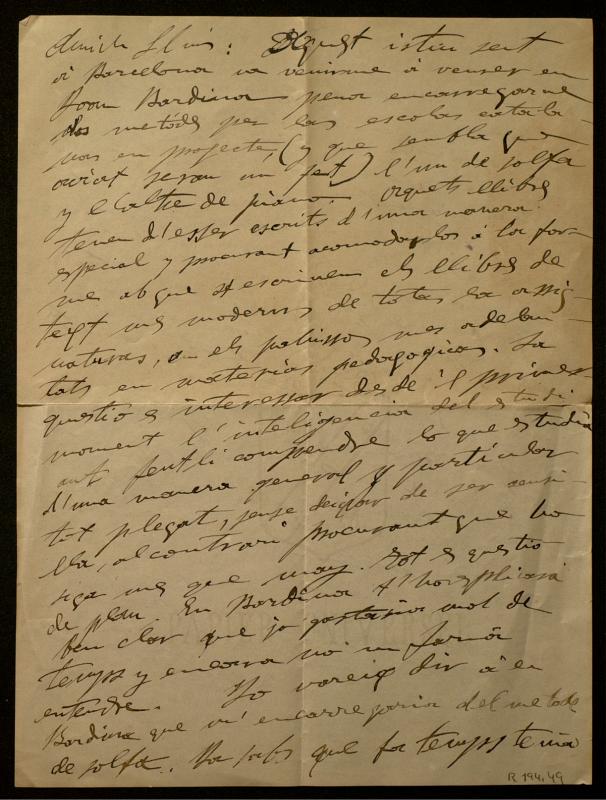 Amich Lluis: Aquest istiu sent
á Barcelona va venirme á veurer en
Joan Bardina pera encarregarme
dos metódes per las escolas catala-
nas en projecte, (y que sembla que
aviat seran un fet) l'un de solfa
y l'altre de piano. Aquets llibres
tenen d'esser escrits d'una manera
especial y procurant acomodarlos á la for-
ma ab que s'escriuen els llibres de
text mes moderns de totas las assig-
naturas, en els paissos mes adelan-
tats en materias pedagogicas. La
questio es interessar desde 'l primer
moment l'inteligencia del estudi-
ant fentli comprendre lo que estudia
d'una manera general y particular
tot plegat, sense deixar de ser senzi-
lla, al contrari procurant que ho
siga mes que may. Tot es questio
de plan. En Bardina t'ho esplicará
ben clar que jo gastaria molt de
temps y encara no m faria
entendre. Yo vareig dir á en
Bardina que m'encarregaria del metode
de solfa. Ya sabs que fa temps tenia
R.194.49